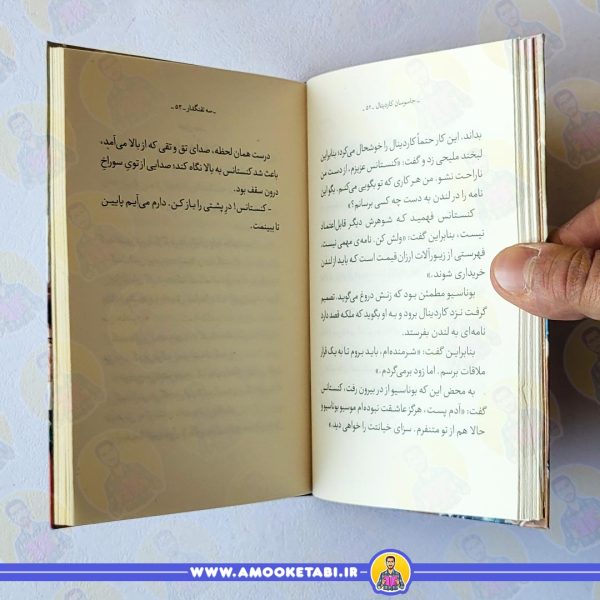 ـ جاسوسان کاردینال ـ ۵۲ ـ
بداند. این کار حتماً کاردینال را خوشحال می‌کرد؛ بنابراین
لبخند ملیحی زد و گفت: «کنستانس عزیزم، از دست من
ناراحت نشو. من هر کاری که تو بگویی می‌کنم. بگو این
نامه را در لندن به دست چه کسی برسانم؟»
کنستانس فهمید که شوهرش دیگر قابل‌اعتماد
نیست، بنابراین گفت: «ولش کن. نامه‌ی مهمی نیست.
فهرستی از زیورآلات ارزان‌قیمت است که باید از لندن
خریداری شوند.»
بوناسیو مطمئن بود که زنش دروغ می‌گوید. تصمیم
گرفت نزد کاردینال برود و به او بگوید که ملکه قصد دارد
نامه‌ای به لندن بفرستد.
بنابراین گفت: «شرمنده‌ام، باید بروم تا به یک قرار
ملاقات برسم. اما زود برمی‌گردم.»
به محض این که بوناسیو از در بیرون رفت، کنستانس
گفت: «آدم پست، هرگز عاشقت نبوده‌ام موسیو بوناسیو و
حالا هم از تو متنفرم. سزای خیانتت را خواهی دید.»
ـ سه تفنگدار ـ ۵۳ ـ
درست همان لحظه، صدای تق و تقی که از بالا می‌آمد،
باعث شد کنستانس به بالا نگاه کند؛ صدایی از توی سوراخ
درون سقف بود.
ـ کنستانس! درِ پشتی را باز کن. دارم می‌آیم پایین
تا ببینمت.
WWW.AMOOKETABI.IR